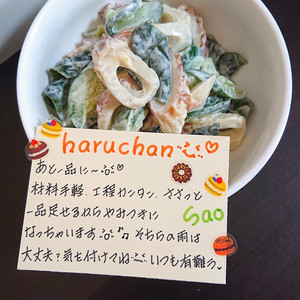 haruchan♡
あと一品に〜♡
材料手軽、工程カンタン、ささっと
一品足せるからやみつきに
なっちゃいます♪ そちらの雨は
大丈夫？気を付けてね いつも有難う
Sao